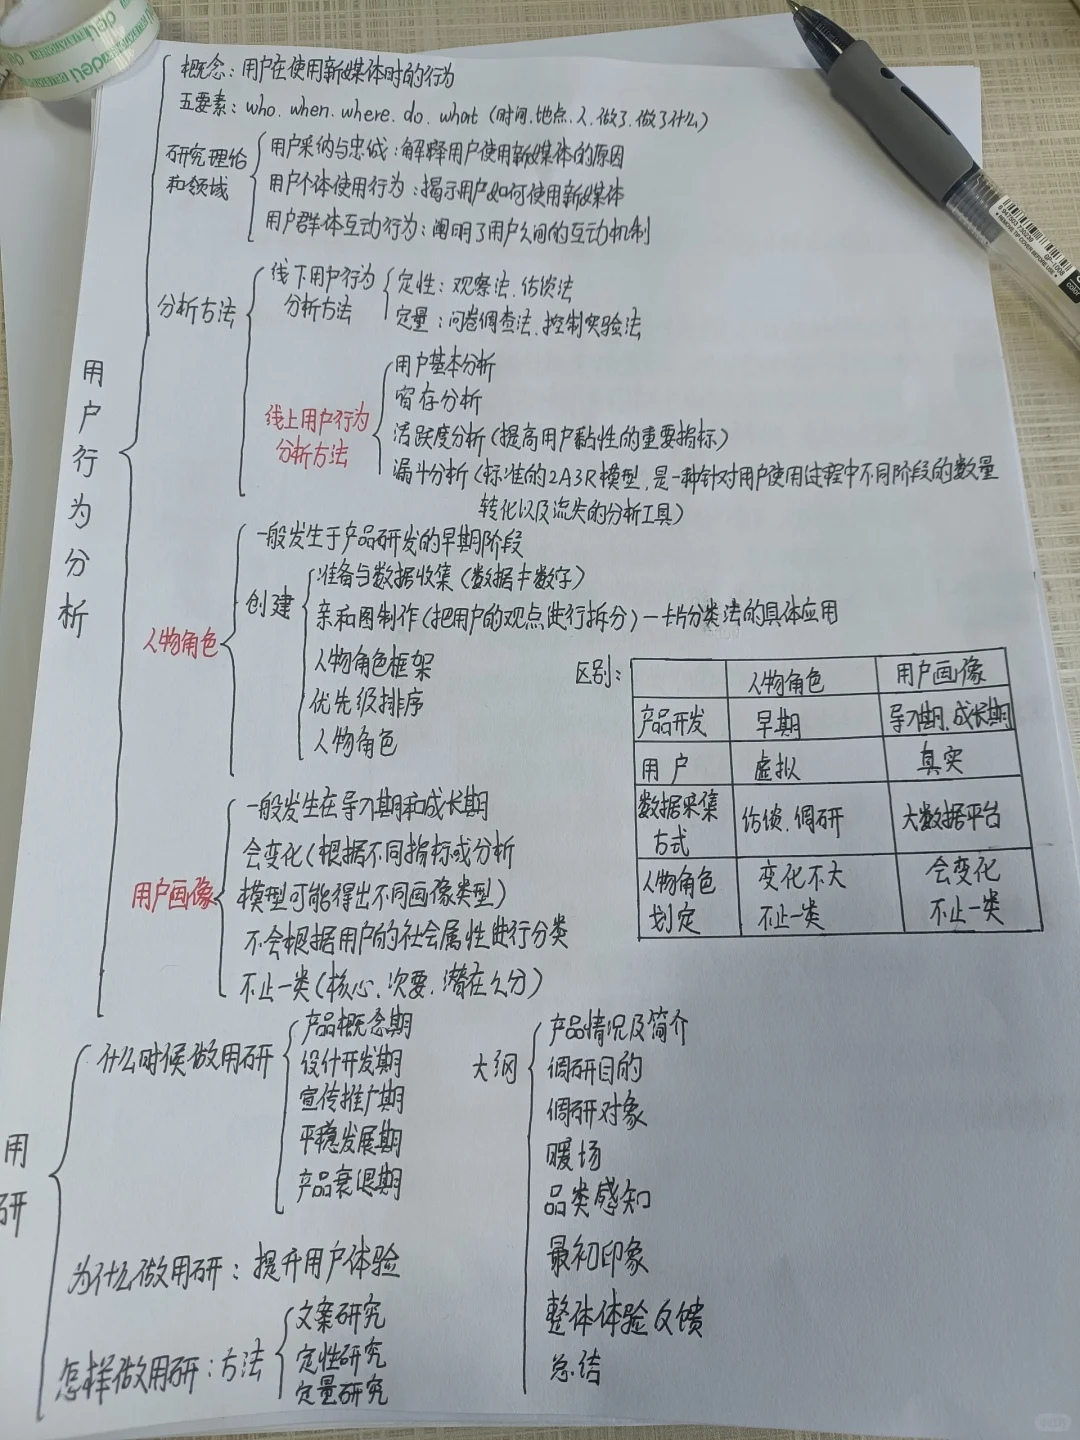 概念：用户在使用新媒体时的行为
五要素：who. when. where. do. what（时间.地点.人.做了.做了什么）
研究理论
和领域
用户采纳与忠诚：解释用户使用新媒体的原因
用户个体使用行为：揭示用户如何使用新媒体
用户群体互动行为：阐明了用户之间的互动机制
分析方法
线下用户行为
分析方法
定性：观察法.访谈法
定量：问卷调查法.控制实验法
线上用户行为
分析方法
用户基本分析
留存分析
活跃度分析（提高用户黏性的重要指标）
漏斗分析（标准的2A3R模型，是一种针对用户使用过程中不同阶段的数量
转化以及流失的分析工具）
用户行为分析
人物角色
一般发生于产品研发的早期阶段
创建
准备与数据收集（数据≠数字）
亲和图制作（把用户的观点进行拆分）—卡片分类法的具体应用
人物角色框架
优先级排序
人物角色
区别：
人物角色 用户画像
产品开发 早期 导入期.成长期
用户 虚拟 真实
数据采集
方式 访谈.调研 大数据平台
人物角色 变化不大 会变化
划定 不止一类 不止一类
用户画像
一般发生在导入期和成长期
会变化（根据不同指标或分析
模型可能得出不同画像类型）
不会根据用户的社会属性进行分类
不止一类（核心.次要.潜在之分）
用研
什么时候做用研
产品概念期
设计开发期
宣传推广期
平稳发展期
产品衰退期
为什么做用研：提升用户体验
怎样做用研：方法
文案研究
定性研究
定量研究
大纲
产品情况及简介
调研目的
调研对象
暖场
品类感知
最初印象
整体体验反馈
总结
deli